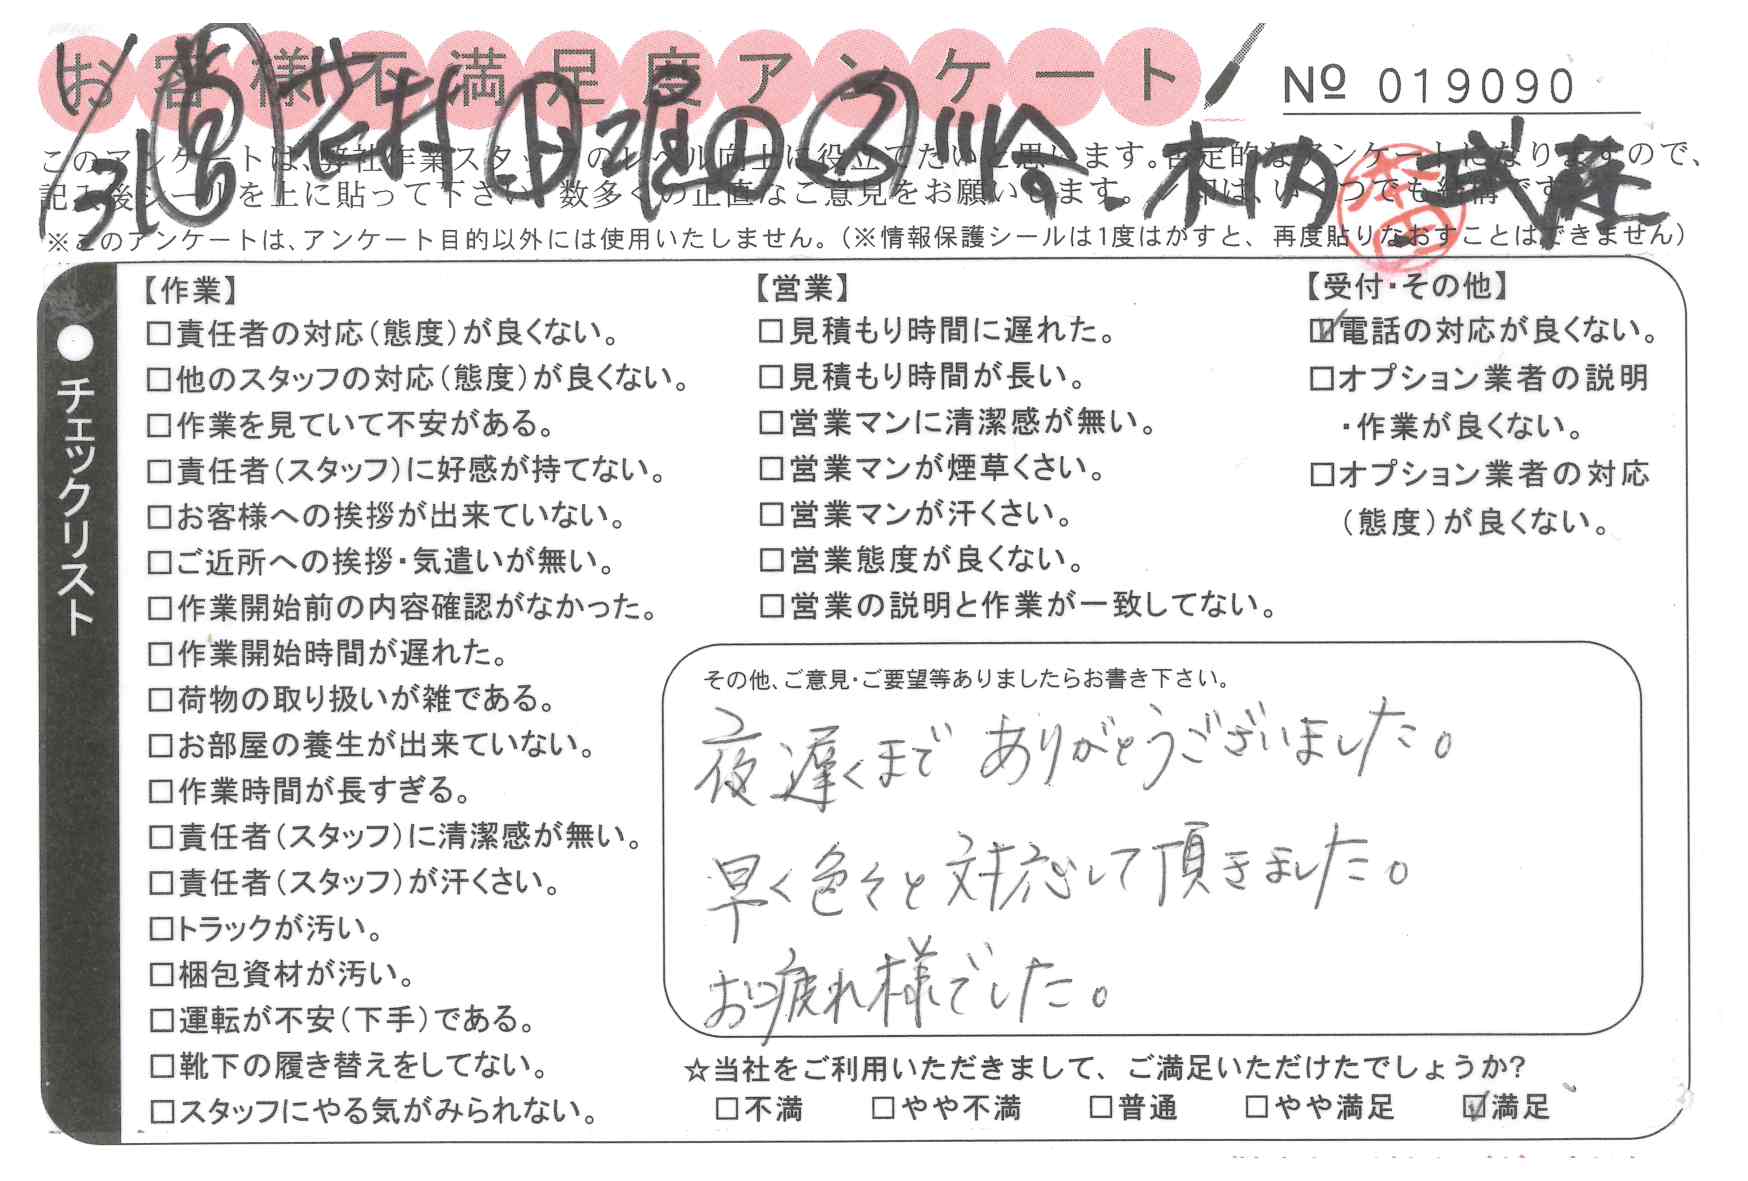 お客様不満足度アンケート
№ 019090
1/31 営 花村 ・ 木内 武藤
本田
このアンケートは、弊社作業スタッフのレベル向上に役立てたいと思います。否定的なアンケートになりますので、
記入後シールを上に貼って下さい。数多くの正直なご意見をお願いします。／印は、いくつでも結構です。
※このアンケートは、アンケート目的以外には使用いたしません。（※情報保護シールは1度はがすと、再度貼りなおすことはできません）
●チェックリスト
【作業】
□責任者の対応（態度）が良くない。
□他のスタッフの対応（態度）が良くない。
□作業を見ていて不安がある。
□責任者（スタッフ）に好感が持てない。
□お客様への挨拶が出来ていない。
□ご近所への挨拶・気遣いが無い。
□作業開始前の内容確認がなかった。
□作業開始時間が遅れた。
□荷物の取り扱いが雑である。
□お部屋の養生が出来ていない。
□作業時間が長すぎる。
□責任者（スタッフ）に清潔感が無い。
□責任者（スタッフ）が汗くさい。
□トラックが汚い。
□梱包資材が汚い。
□運転が不安（下手）である。
□靴下の履き替えをしてない。
□スタッフにやる気がみられない。
【営業】
□見積もり時間に遅れた。
□見積もり時間が長い。
□営業マンに清潔感が無い。
□営業マンが煙草くさい。
□営業マンが汗くさい。
□営業態度が良くない。
□営業の説明と作業が一致してない。
【受付・その他】
☑電話の対応が良くない。
□オプション業者の説明
・作業が良くない。
□オプション業者の対応
（態度）が良くない。
その他、ご意見・ご要望等ありましたらお書き下さい。
夜遅くまで ありがとうございました。
早く色々と対応して頂きました。
お疲れ様でした。
☆当社をご利用いただきまして、ご満足いただけたでしょうか？
□不満 □やや不満 □普通 □やや満足 ☑満足